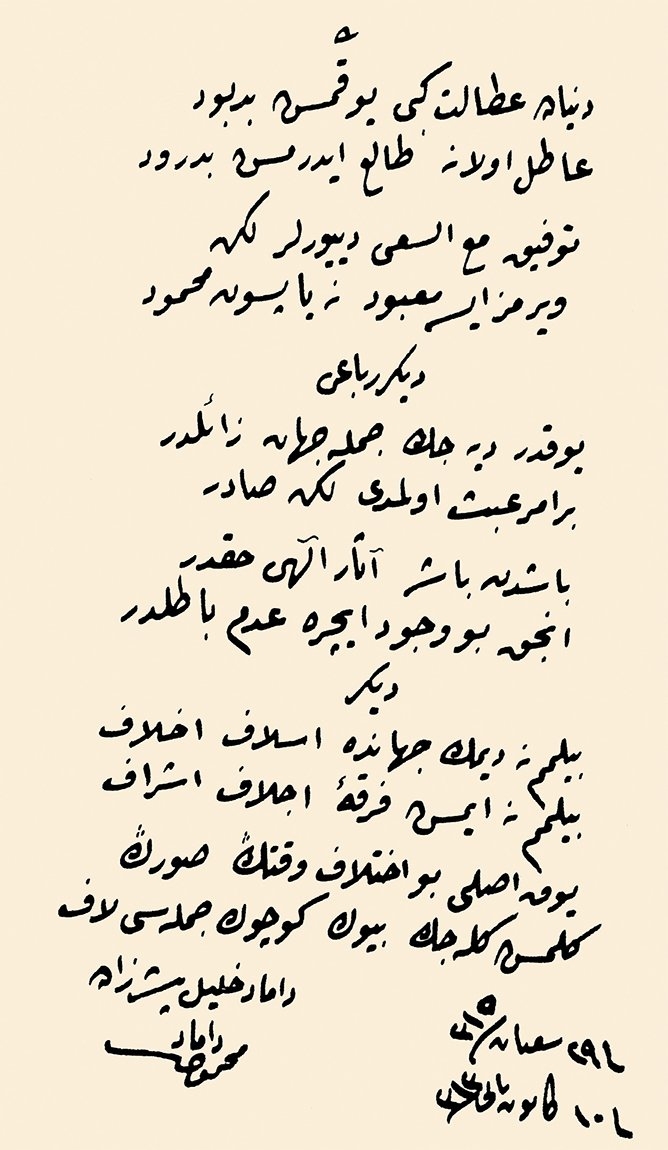 دنیاده عطالت کبی یوقمش بدبود
عاطل اولانه طالع ایدرمش بدرود
توفیق مع السعی دییورلر لکن
ویرمز ایسه معبود نه یاپسون محمود
دیکر رباعی
یوقدر دیه جك جمله جهان زائلدر
بر امر عبث اولمدی لکن صادر
باشدن باشه آثار الٓهی حقدر
انجق بو وجود ایچره عدم باطلدر
دیکر
بیلمم نه دیمك جهانده اسلاف اخلاف
بیلمم نه ایمش فرقهٔ اجلاف اشراف
یوق اصلی بو اختلاف وقتڭ صورڭ
کلمش کله جك بیوك کوچوك جمله سی لاف
داماد خلیل پاشا زاده
داماد
محمود
فی ٢٩ شعبان ٣١٥
فی ١٠ كانون ثانی ٣١٣